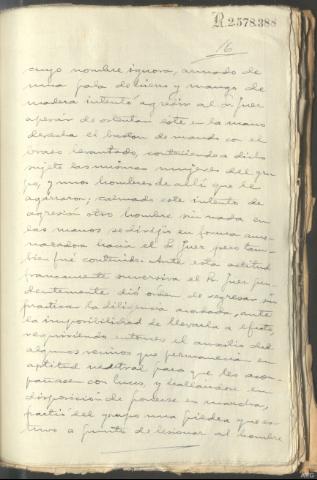 R.2.578.388
16
cuyo nombre ignora, armado de
una pala de hierro y mango de
madera intentó agredir al Sr Juez
apesar de ostentar este en la mano
derecha el baston de mando con el
brazo levantado, conteniendo a dicho
sujeto las mismas mujeres del gru-
po, y unos hombres de allí que le
agarraron; calmado este intento de
agresión otro hombre sin nada en
las manos se dirigió en forma ame-
nazadora hacia el Sr Juez pero tam-
bien fué contenido. Ante esta actitud
francamente suversiva el Sr Juez pru-
dentemente dió orden de regresar sin
practicar la diligencia acordada, ante
la imposibilidad de llevarla a efecto,
requiriendo entonces el auxilio de
algunos vecinos que permanecian en
aptitud neutral para que les acom-
pañasen con luces, y hallandose en
disposición de ponerse en marcha,
partió del grupo una piedra que es-
tuvo a punto de lesionar al hombre